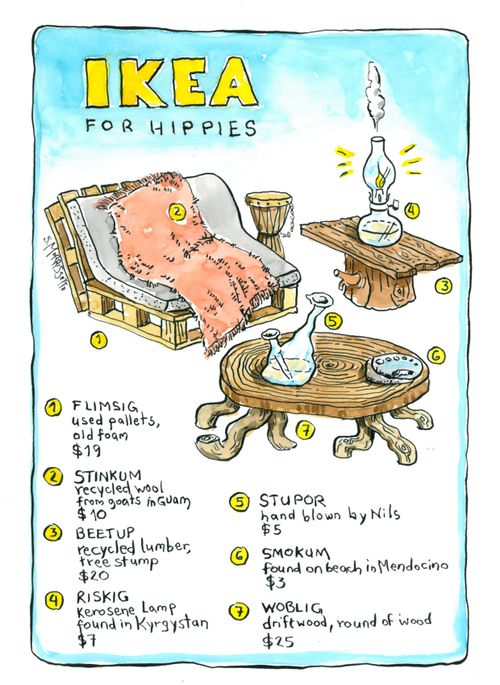 IKEA
FOR HIPPIES
2
4
3
1
5
6
7
1 FLIMSIG
used pallets,
old foam
$19
2 STINKUM
recycled wool
from goats in Guam
$10
3 BEETUP
recycled lumber,
tree stump
$20
4 RISKIG
kerosene Lamp
found in Kyrgystan
$7
5 STUPOR
hand blown by Nils
$5
6 SMOKUM
found on beach in Mendocino
$3
7 WOBLIG
driftwood, round of wood
$25